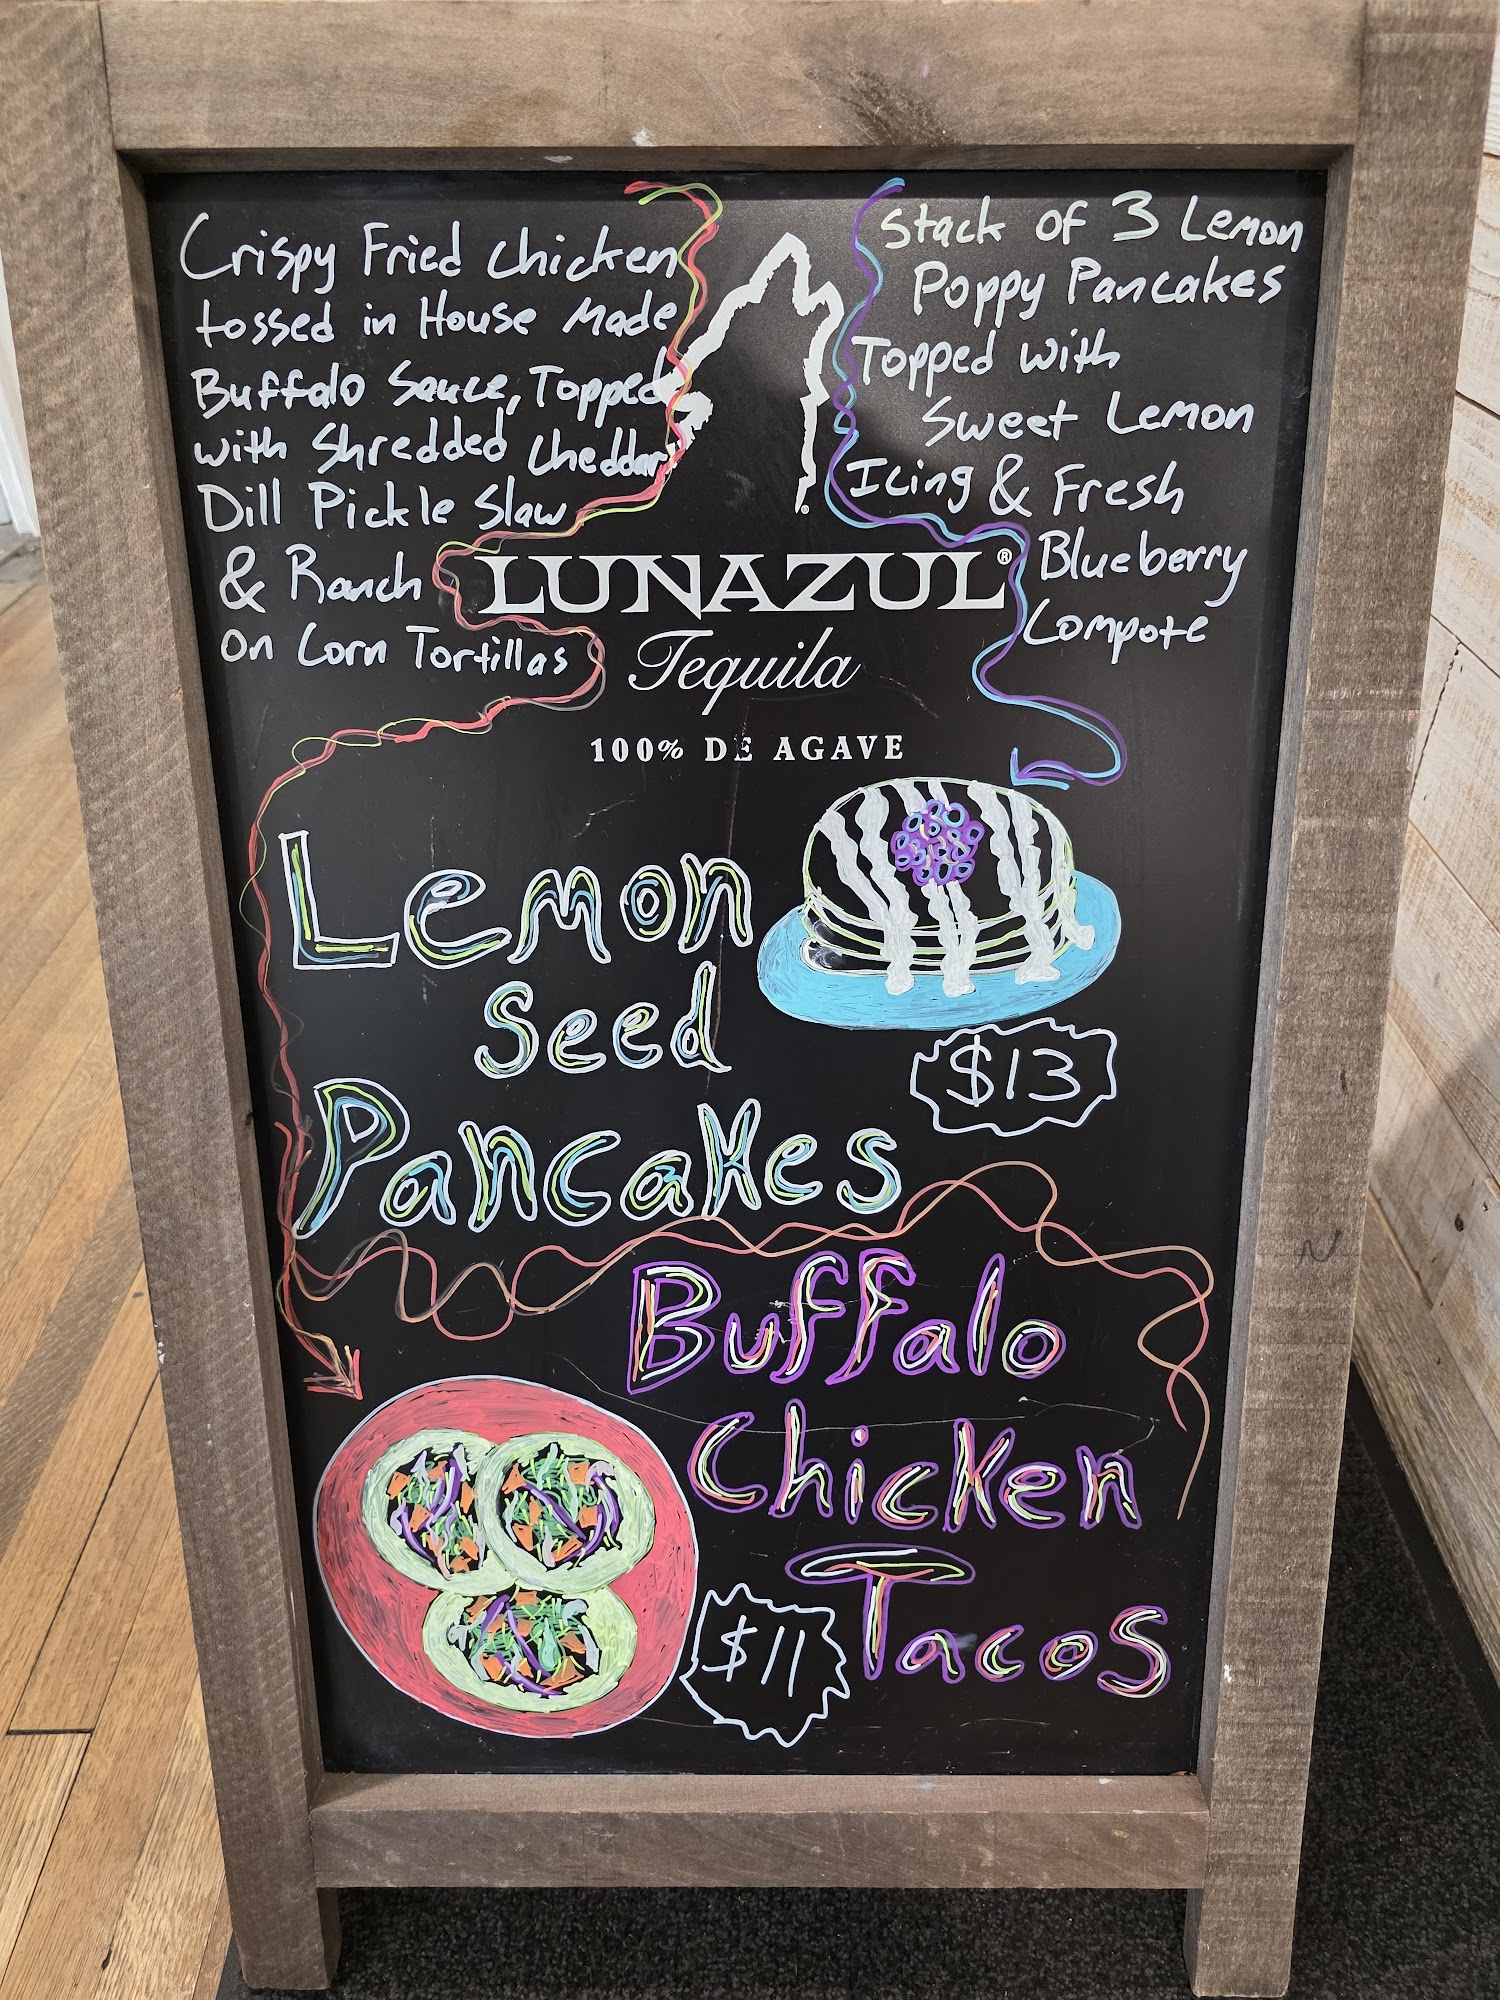 Crispy Fried Chicken
tossed in House Made
Buffalo Sauce, Topped
with Shredded Cheddar
Dill Pickle Slaw
& Ranch
on Corn Tortillas
Stack of 3 Lemon
Poppy Pancakes
Topped with
Sweet Lemon
Icing & Fresh
Blueberry
Compote
LUNAZUL®
Tequila
100% DE AGAVE
Lemon
Seed
Pancakes
$13
Buffalo
Chicken
Tacos
$11